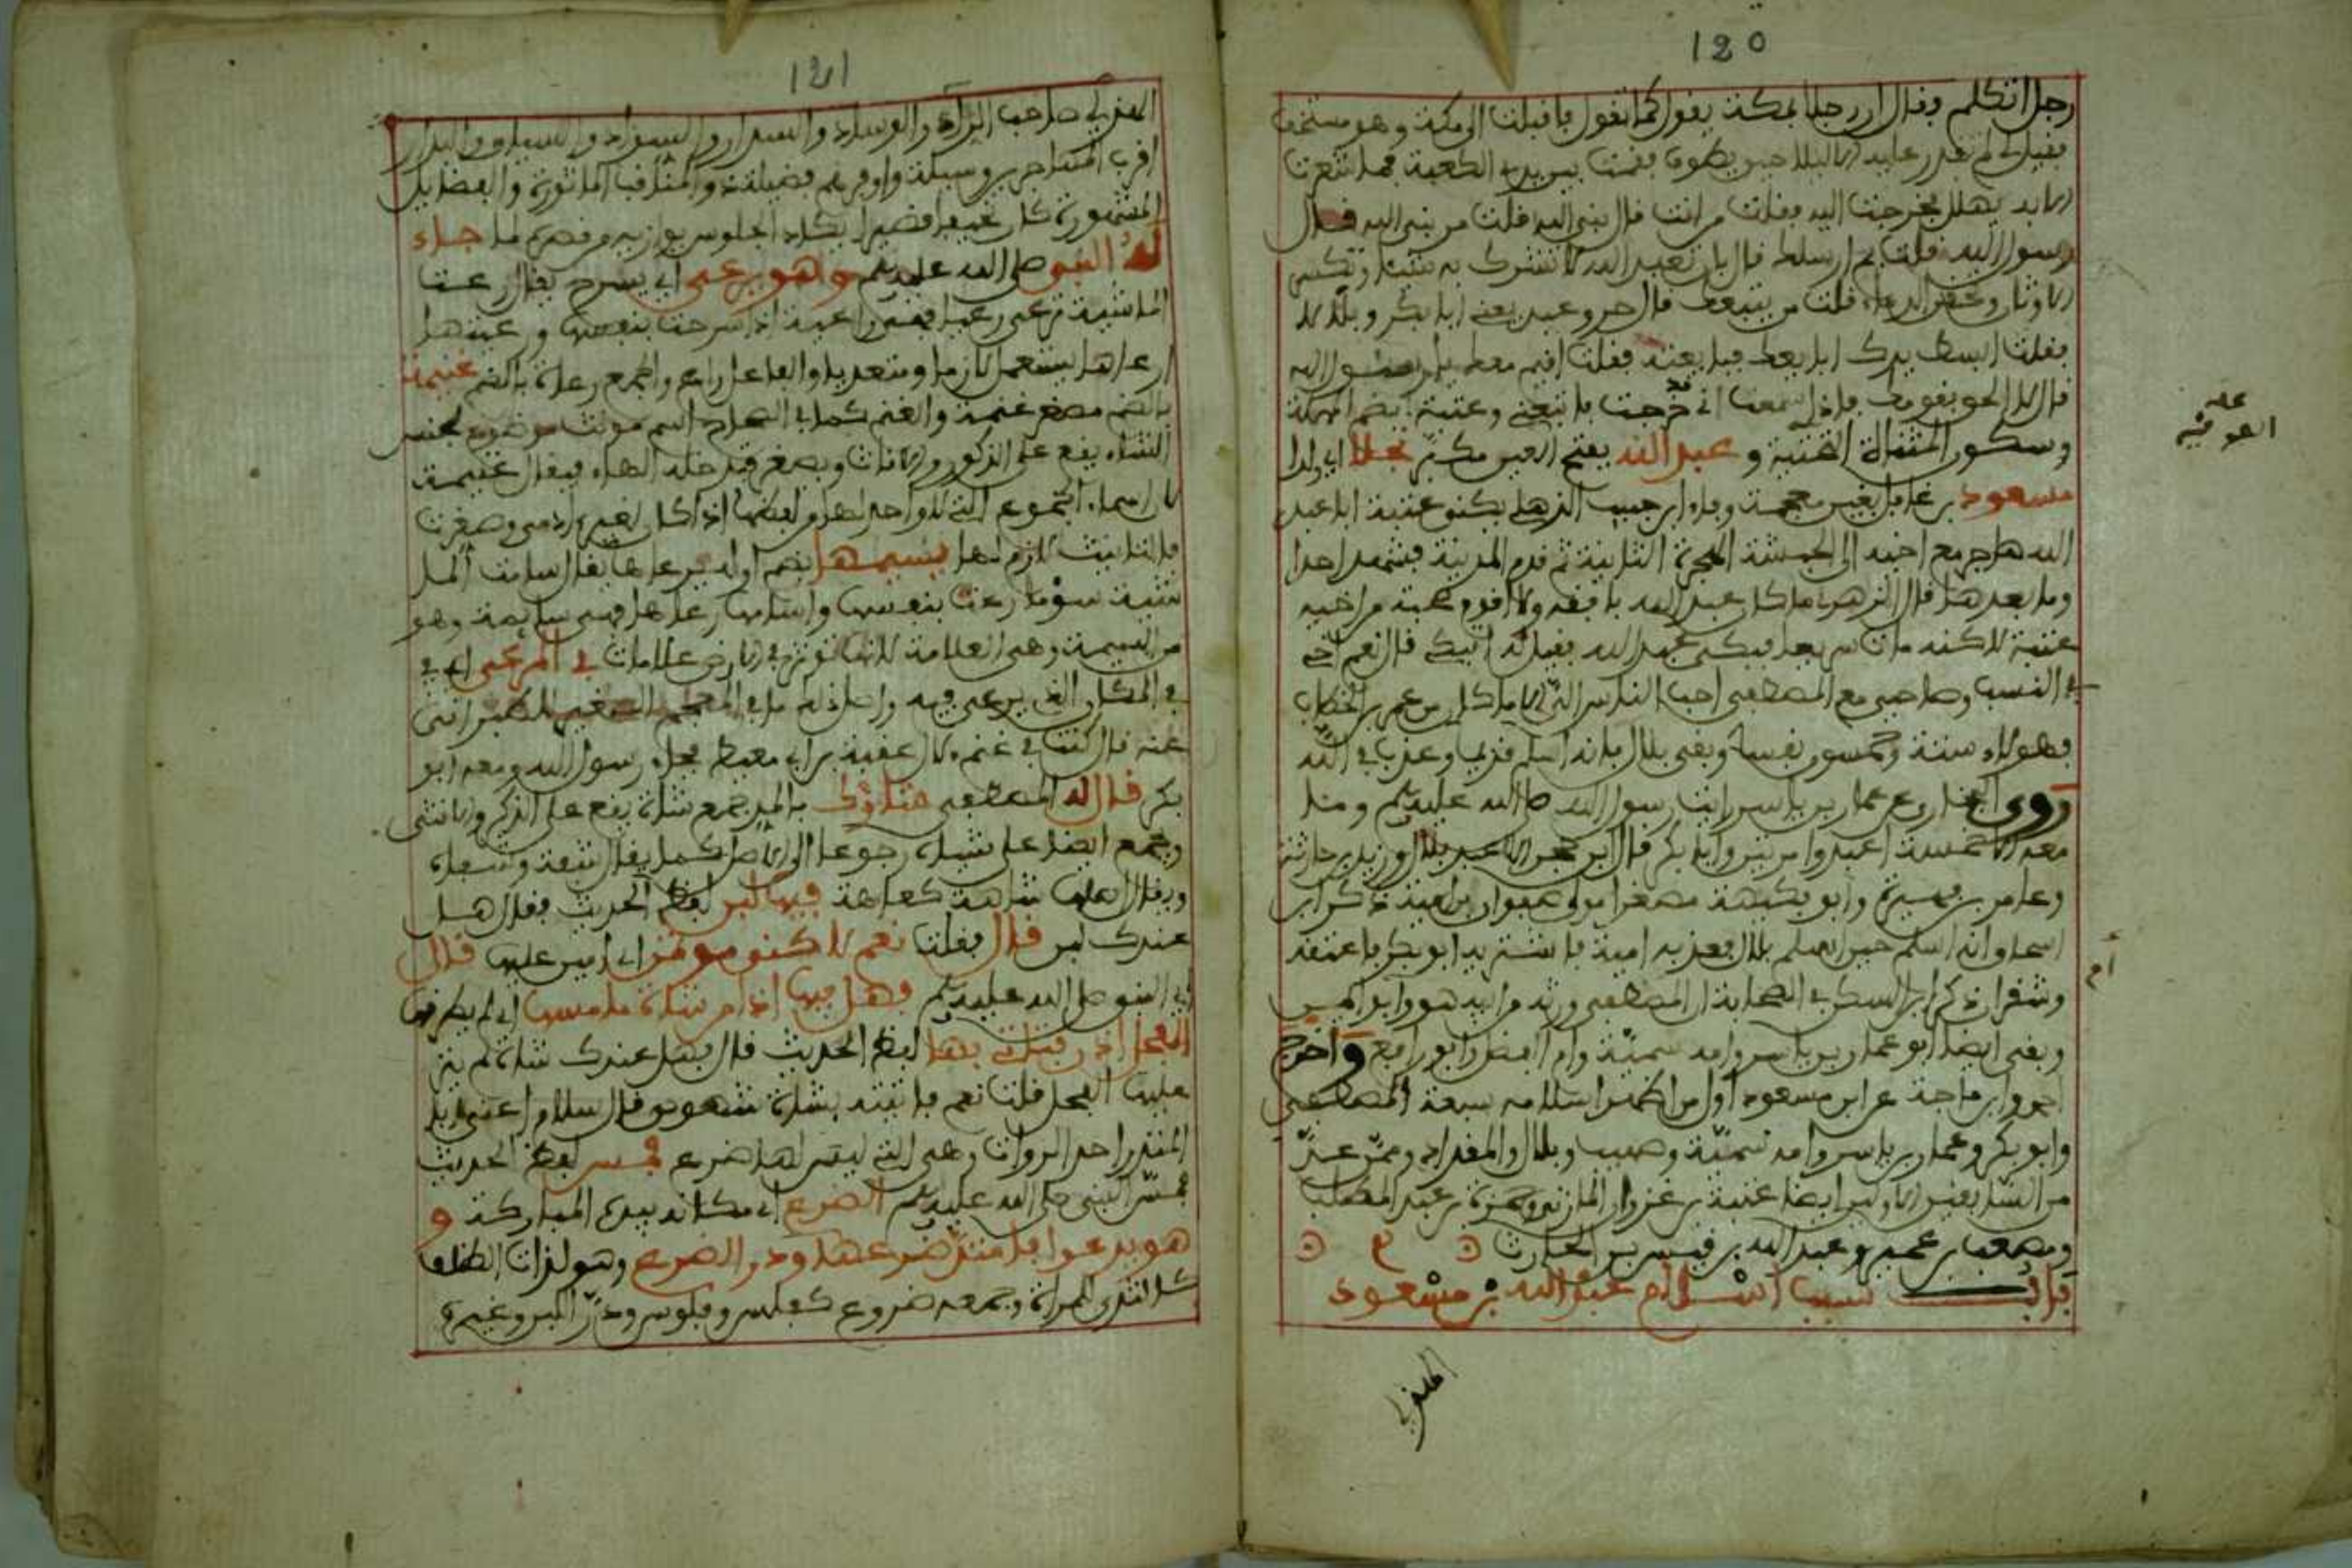 120
رجلا تكلم فقال ان رجلا بمكة يقول كما تقول فاقبلت الى مكة وهو مستخف
فقيل لي لم تقدر عليه الا بالليل حين يطوف فقمت بين يدي الكعبة فما شعرت
الا به يهلل فخرجت اليه فقلت من انت قال نبي الله قلت من نبي الله قال
رسول الله قلت بم ارسلك قال بان تعبد الله لا تشرك به شيئا وتكسر
الاوثان وتحقن الدماء قلت من يتبعك قال حر وعبد يعني ابا بكر وبلالا
فقلت ابسط يدك ابايعك فبايعته فقلت اقيم معك يا رسول الله
قال لا الحق بقومك فاذا سمعت اني خرجت فاتبعني وعتبة بضم المهملة
وسكون المثناة الفتية و عبد الله بفتح العين مكبر نجلا اي ولدا
مسعود بن غافل بغين معجمة وفاء ابن حبيب الهذلي يكنى عتبة ابا عبد
الله هاجر مع اخيه الى الحبشة الهجرة الثانية ثم قدم المدينة فشهد احدا
وما بعدها قال الزهري ما كان عبد الله بافقه ولا اقدم صحبة من اخيه
عتبة لاكنه مات سريعا فبكى عبد الله فقيل له اتبكي قال نعم اخي
في النسب وصاحبي مع المصطفى احب الناس الي الا ما كان من عمر بن الخطاب
فهولاء ستة وخمسون نفسا وبقي بلال فانه اسلم قديما وعذب في الله
روى البخاري عن عمار بن ياسر رايت رسول الله صلى الله عليه وسلم وما
معه الا خمسة اعبد وامرتين وابا بكر قال ابن حجر الاعبد بلال وزيد بن حارثة
وعامر بن فهيرة وابو فكيهة مصغرا مولى صفوان بن امية ذكر ابن
اسحاق انه اسلم حين اسلم بلال فعذبه امية فاشتريه ابو بكر فاعتقه
وشقران ذكر ابن السكن في الصحابة ان المصطفى ورثه من ابيه هو وام ايمن
وبقي ايضا ابو عمار بن ياسر وامه سمية وام الفضل وابو رافع واخرج
احمد وابن ماجة عن ابن مسعود اول من اظهر اسلامه سبعة المصطفى
وابو بكر وعمار بن ياسر وامه سمية وصهيب وبلال والمقداد وممن عد
من السابقين الاولين ايضا عتبة بن غزوان المازني وحمزة بن عبد المطلب
ومصعب بن عمير وعبد الله بن قيس بن الحارث
قال سبب اسلام عبد الله بن مسعود
الهذلي
121
الهذلي صاحب الزاد والوساد والسرار والسواد والسيار والبدار
اقرب المهاجرين وسيلة واوفرهم فضيلة والمناقب الماثورة والفضايل
المشهورة كان نحيفا قصيرا يكاد الجلوس يوازيه من قصره لما جاء
له النبي صلى الله عليه وسلم وهو يرعى اي يسرح يقال رعت
الماشية ترعى رعيا فهي راعية اذا سرحت بنفسها ورعيتها
ارعاها يستعمل لازما ومتعديا والفاعل راع والجمع رعاة بالضم غنيمة
بالضم مصغر غنمة والغنم كما في الصحاح اسم مونث موضوع لجنس
الشاء يقع على الذكور والاناث ويصغر فتدخله الهاء فيقال غنيمة
لان اسماء الجموع التي لا واحد لها من لفظها اذا كان لغير ادمي وصغرت
فالتانيث لازم لها يسيمها بضم اوله يرعاها يقال سامت الما
شية سوما رعت بنفسها واسامها رعاها فهي سايمة وهو
من السيمة وهي العلامة لانها تؤثر في الارض علامات في المرعى اي في
في المكان الذي يرعى فيه واصل ذلك ما في المعجم الصغير للطبراني
عنه قال كنت في غنم لال عقبة بن ابي معيط فجاء رسول الله ومعه ابو
بكر قال له المصطفى هناؤك بالمد جمع شاة يقع على الذكر والانثى
ويجمع ايضا على شياه رجوعا الى الاصل كما يقال شفة وشفاه
ويقال اصلها شاهة كعاهة فيها لبن لفظ الحديث فقال هل
عندك لبن قال فقلت نعم لاكنى مؤتمن اي امين عليها قال
اي النبي صلى الله عليه وسلم فهل فيها اذا من شاة ما مسها اي لم يطرقها
الفحل اذ رقتاتي بها لفظ الحديث قال فهل عندك شاة لم ينز
عليها الفحل قلت نعم فاتيته بشاة شصوص قال سلام اعني ابا
المنذر احد الروات وهي التي ليس لها ضرع فمس لفظ الحديث
فمس النبي صلى الله عليه وسلم الضرع اي مكانه بيده المباركة و
هو يدعوا فامتد ضرعها ودر الضرع وهو لذات الظلف
كالثدي للمراة وجمعه ضروع كفلس وفلوس ودر اللبن وغيره